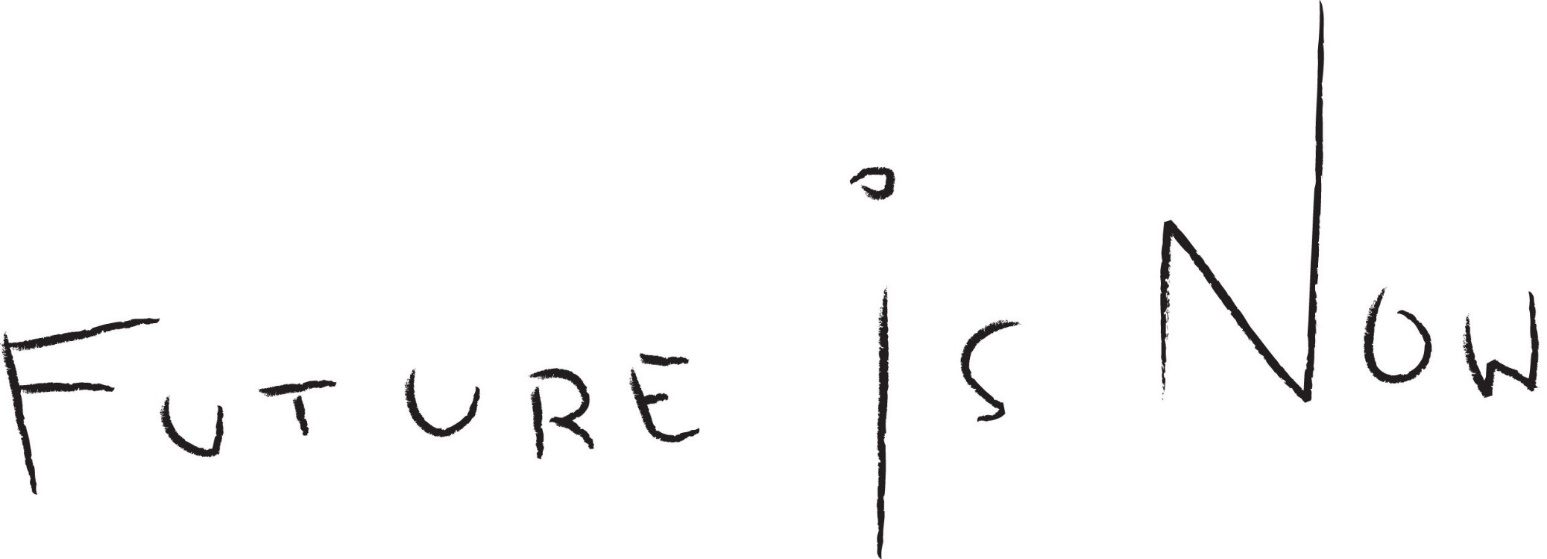 Future is Now